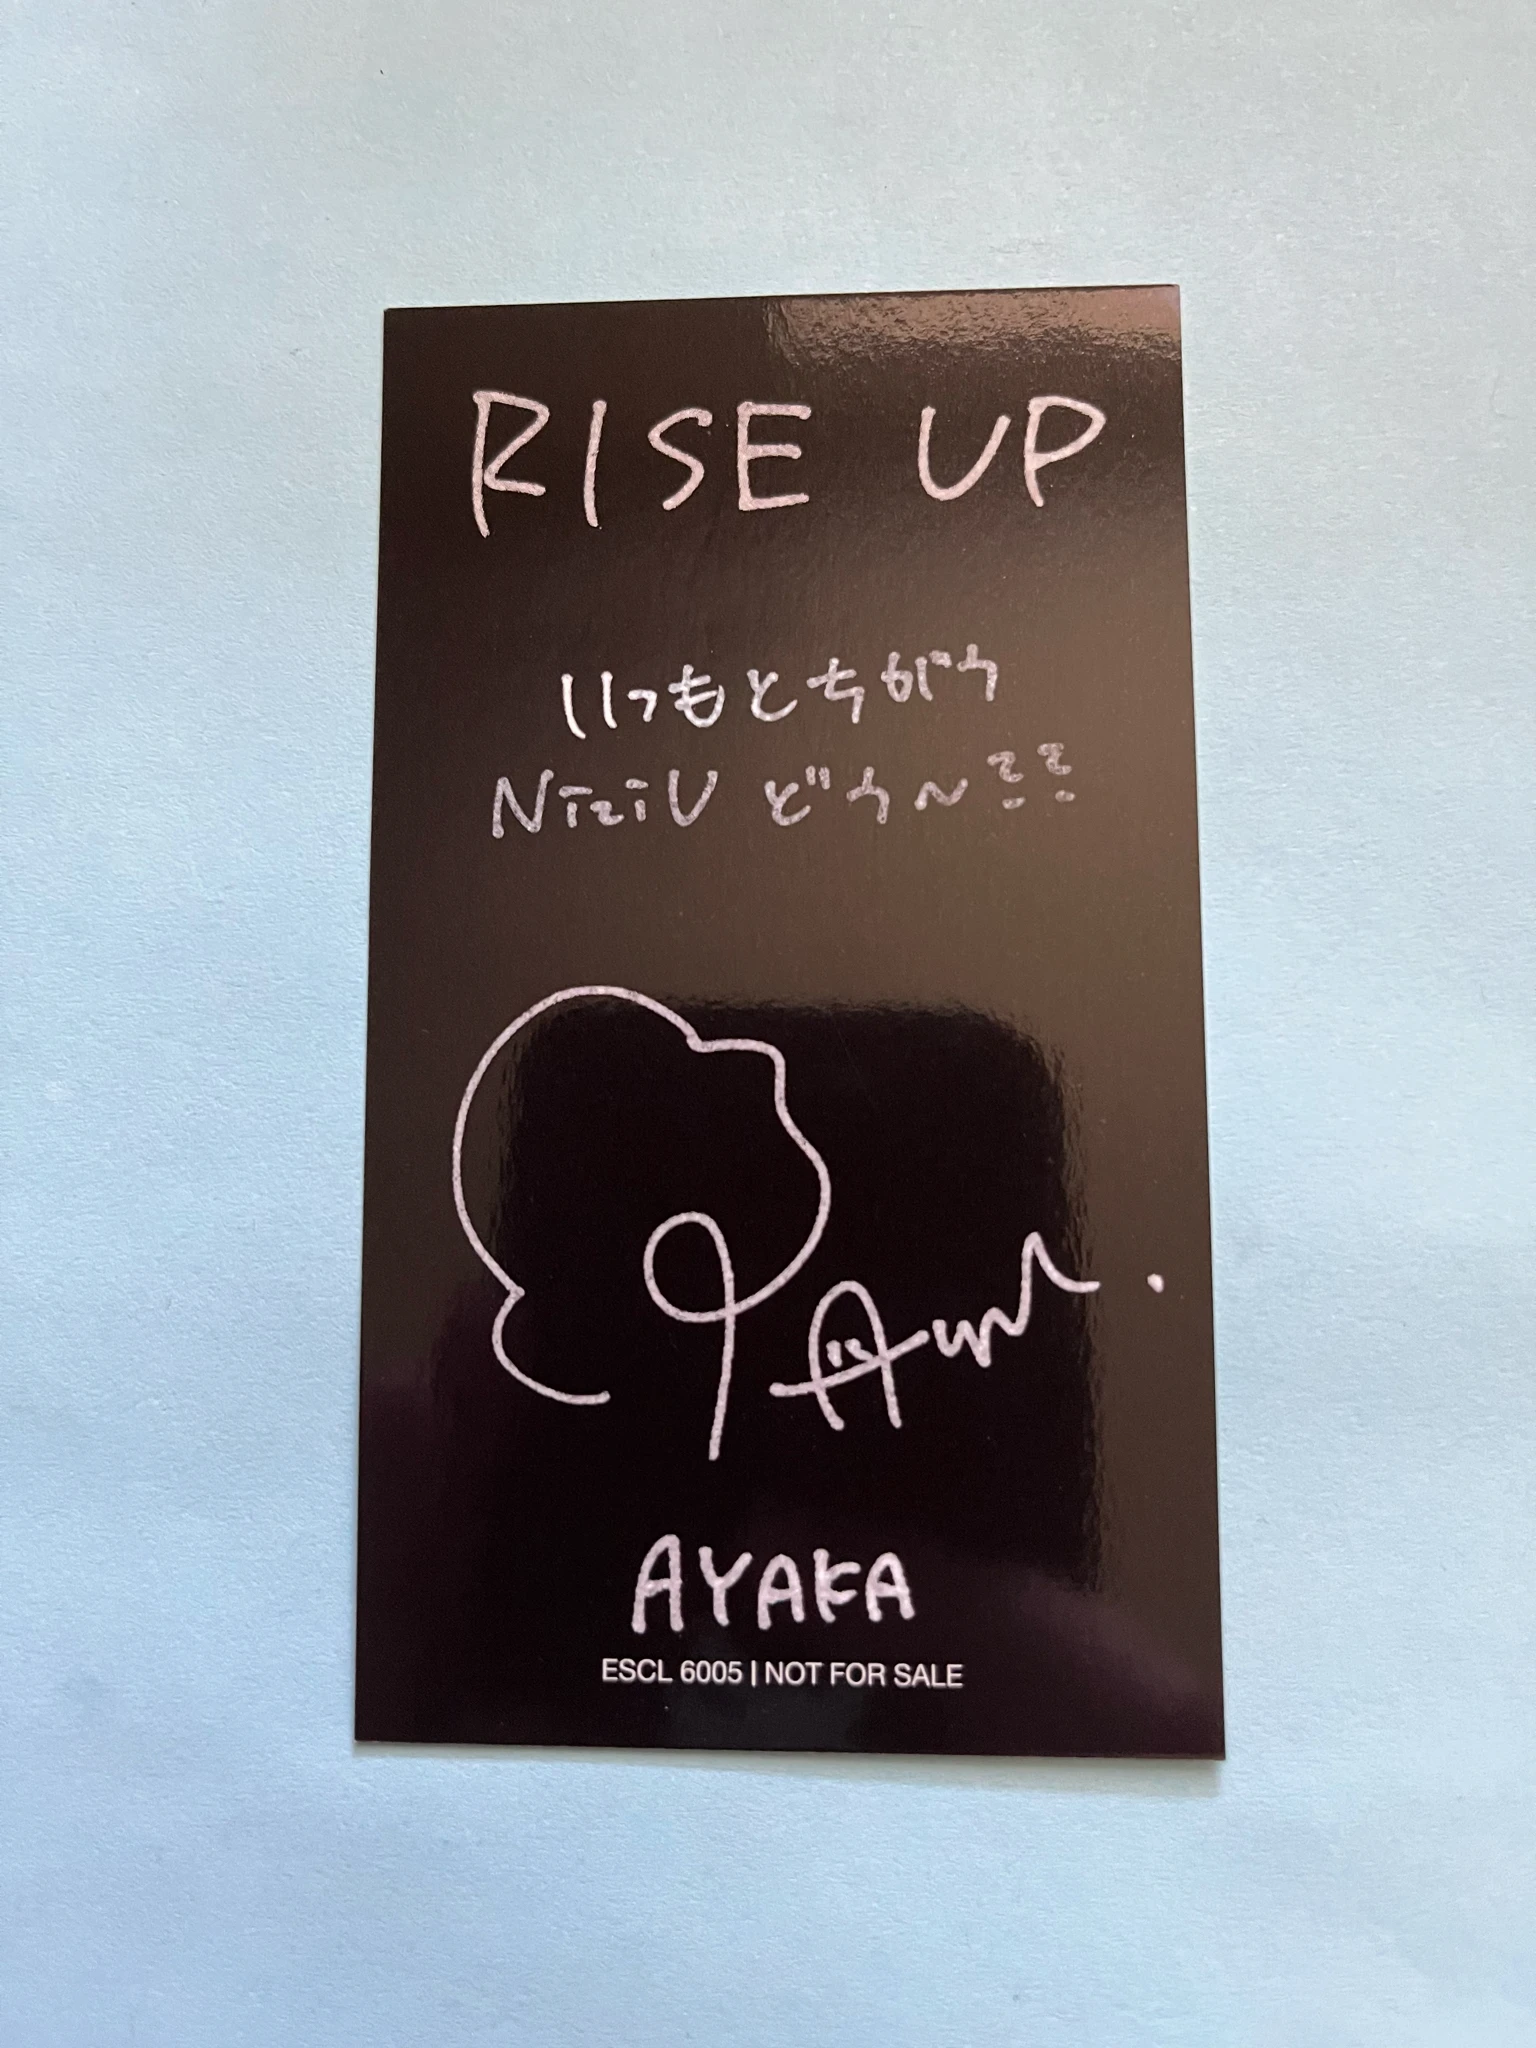 RISE UP
いつもとちがう
NiziU どう〜??
AYAKA
ESCL 6005 | NOT FOR SALE